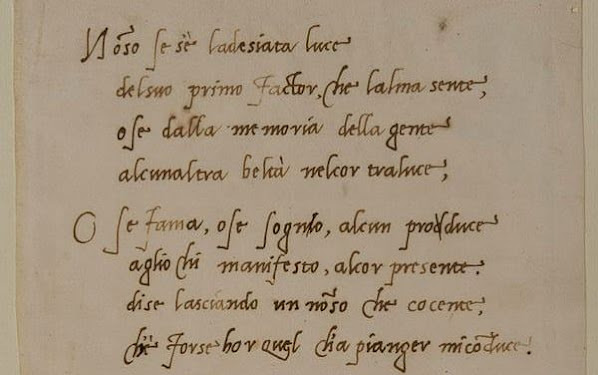 Nõso se s'è ladesiata luce
delsuo primo Factor, che lalma sente,
ose dalla memoria della gente
alcunaltra beltà nelcor traluce;
O se fama, ose sognio, alcun prodduce
agliochi manifesto, alcor presente.
dise lasciando un nõso che cocente,
ch'è forse hor quel ch'a pianger micõduce.